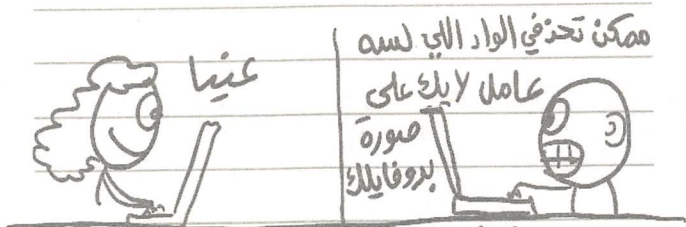 ممكن تحذفي الواد اللي لسه
عامل لايك على
صورة
بروفايلك
عنيا